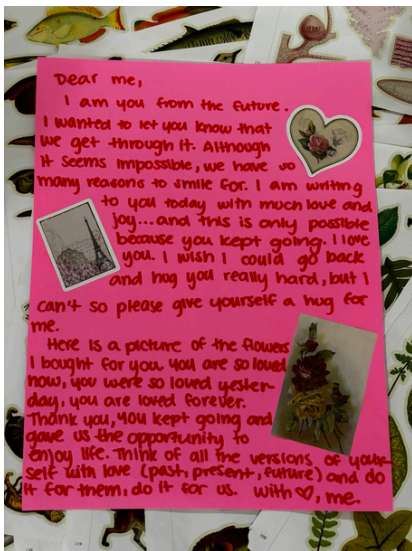 Dear me,
I am you from the future.
I wanted to let you know that
we get through it. Although
it seems impossible, we have so
many reasons to smile for. I am writing
to you today with much love and
joy...and this is only possible
because you kept going. I love
you. I wish I could go back
and hug you really hard, but I
can't so please give yourself a hug for
me.
Here is a picture of the flowers
I bought for you. you are so loved
now, you were so loved yester-
day, you are loved forever.
Thank you, you kept going and
gave us the opportunity to
enjoy life. Think of all the versions of your-
self with love (past, present, future) and do
it for them, do it for us. with ♡, me.